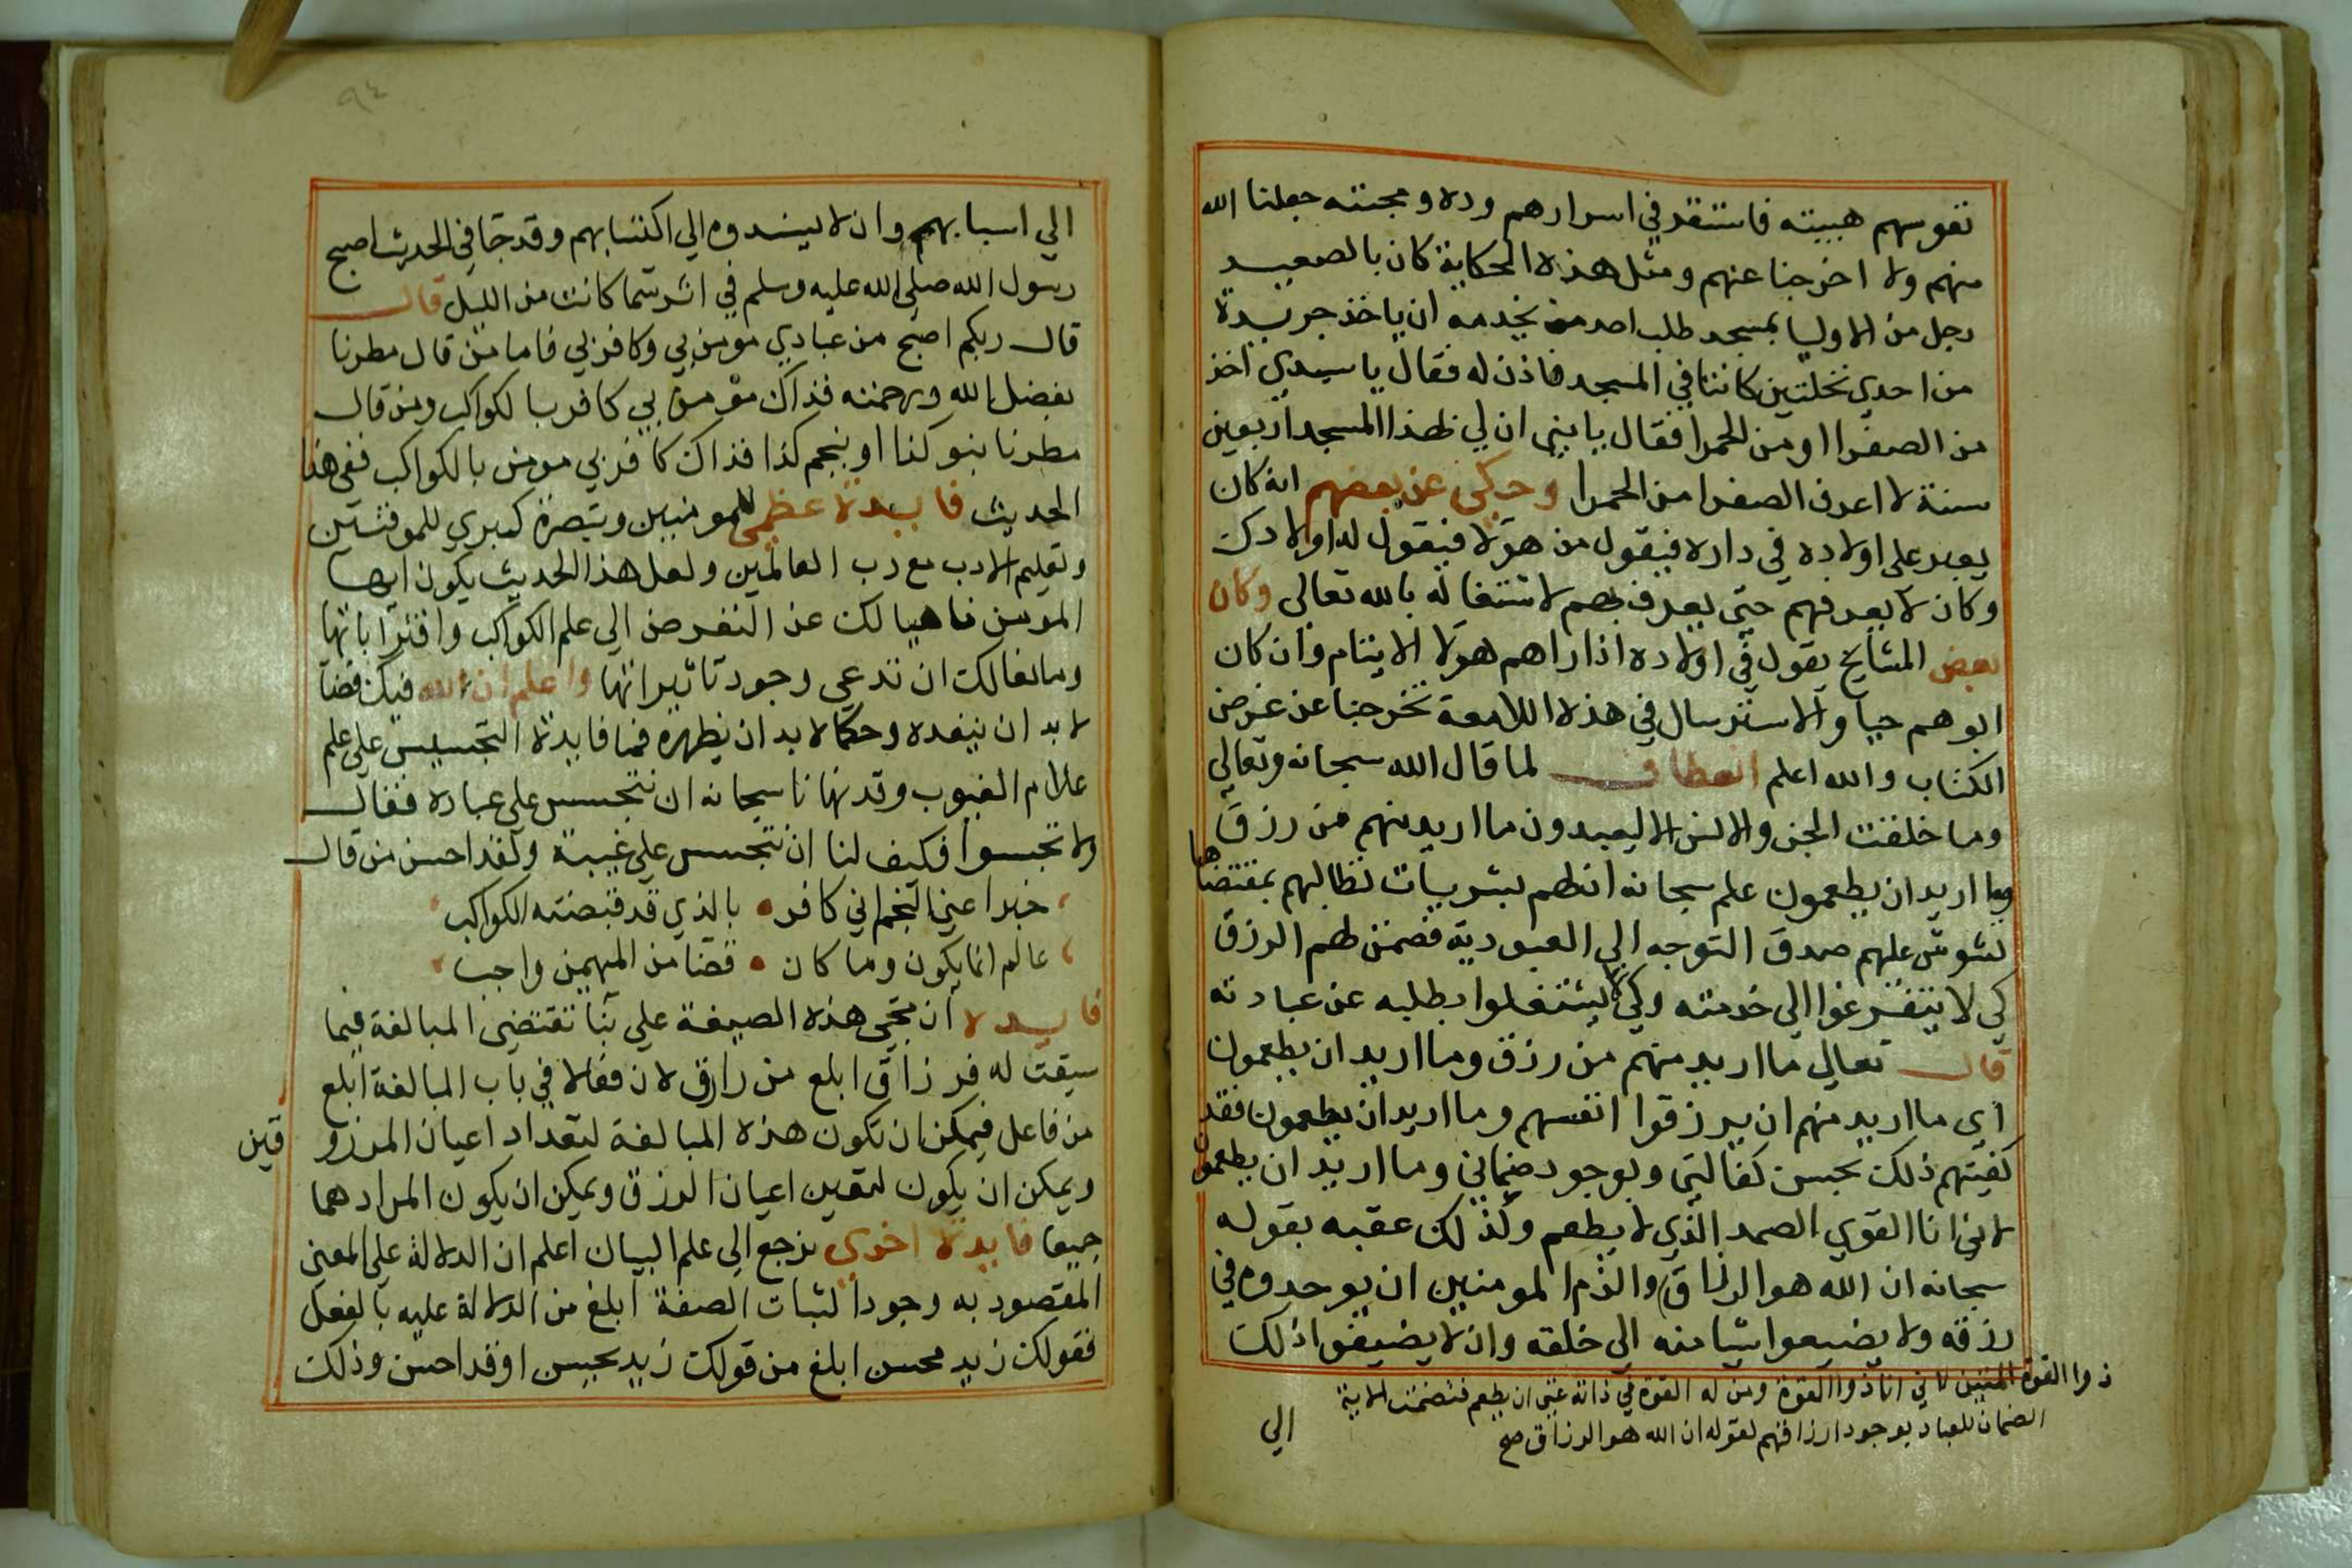 نفوسهم هيبته فاستقر في اسرارهم وده ومحبته جعلنا الله
منهم ولا اخرجنا عنهم ومثل هذه الحكاية كان بالصعيد
رجل من الاوليا بمسجد طلب احد من يخدمه ان ياخذ جريدة
من احدي نخلتين كانتا في المسجد فاذن له فقال يا سيدي اخذ
من الصفرا او من الحمرا فقال يا بني ان لي بهذا المسجد اربعين
سنة لا اعرف الصفرا من الحمرا وحكي عن بعضهم انه كان
يعبر علي اولاده في داره فيقول من هولا فيقول له اولادك
وكان لا يعرفهم حتي يعرف بهم لاشتغاله بالله تعالي وكان
بعض المشايخ يقول في اولاده اذا راهم هولا الايتام وان كان
ابوهم حيا والاسترسال في هذه اللامعة تخرجنا عن غرض
الكتاب والله اعلم انعطاف لما قال الله سبحانه وتعالي
وما خلقت الجن والانس الا ليعبدون ما اريد منهم من رزق
وما اريد ان يطعمون علم سبحانه ان لهم بشريات تطالبهم بمقتضاها
تشوش عليهم صدق التوجه الي العبودية فضمن لهم الرزق
كي لا يتفرغوا الي خدمته وكي لا يشتغلوا بطلبه عن عبادته
قال تعالي ما اريد منهم من رزق وما اريد ان يطعمون
اي ما اريد منهم ان يرزقوا انفسهم وما اريد ان يطعمون فقد
كفيتهم ذلك بحسن كفالتي وبوجود ضماني وما اريد ان يطعمون
لاني انا القوي الصمد الذي لا يطعم ولذلك عقبه بقوله
سبحانه ان الله هو الرزاق والزم المومنين ان يوحدوه في
رزقه ولا يضيعوا شيا منه الي خلقه وان لا يضيفوا ذلك
ذوا القوة المتين لاني انا ذوا القوة ومن له القوة في ذاته غني ان يطعم فتضمنت الاية
الضمان للعباد بوجود ارزاقهم لقوله ان الله هو الرزاق صح
الي
٩٤
الي اسبابهم وان لا يسندوه الي اكتسابهم وقد جا في الحديث اصبح
رسول الله صلي الله عليه وسلم في اثر سما كانت من الليل قال
قال ربكم اصبح من عبادي مومن بي وكافر بي فاما من قال مطرنا
بفضل الله ورحمته فذاك مومن بي كافر بالكواكب ومن قال
مطرنا بنو كذا او بنجم كذا فذاك كافر بي مومن بالكواكب ففي هذا
الحديث فايدة عظمي للمومنين وتبصرة كبري للموقنين
وتعليم الادب مع رب العالمين ولعل هذا الحديث يكون ايها
المومن ناهيا لك عن التعرض الي علم الكواكب واقتراناتها
ومانعا لك ان تدعي وجود تاثيراتها واعلم ان لله فيك قضا
لا بد ان ينفذه وحكما لا بد ان يظهره فما فايدة التجسيس علي علم
علام الغيوب وقد نهانا سبحانه ان نتجسس علي عباده فقال
ولا تجسسوا فكيف لنا ان نتجسس علي غيبه ولقد احسن من قال
خبرا عني المنجم اني كافر بالذي قد قضته الكواكب
عالم انما يكون وما كان قضا من المهيمن واجب
فايدة ان مجي هذه الصيغة علي بنا تقتضي المبالغة فيما
سيقت له فرزاق ابلغ من رازق لان فعالا في باب المبالغة ابلغ
من فاعل فيمكن ان تكون هذه المبالغة لتعداد اعيان المرزوقين
ويمكن ان يكون لتعين اعيان الرزق ويمكن ان يكون المراد هما
جميعا فايدة اخري ترجع الي علم البيان اعلم ان الدلالة علي المعني
المقصود به وجودا لثبات الصفة ابلغ من الدلالة عليه بالفعل
فقولك زيد محسن ابلغ من قولك زيد يحسن او قد احسن وذلك